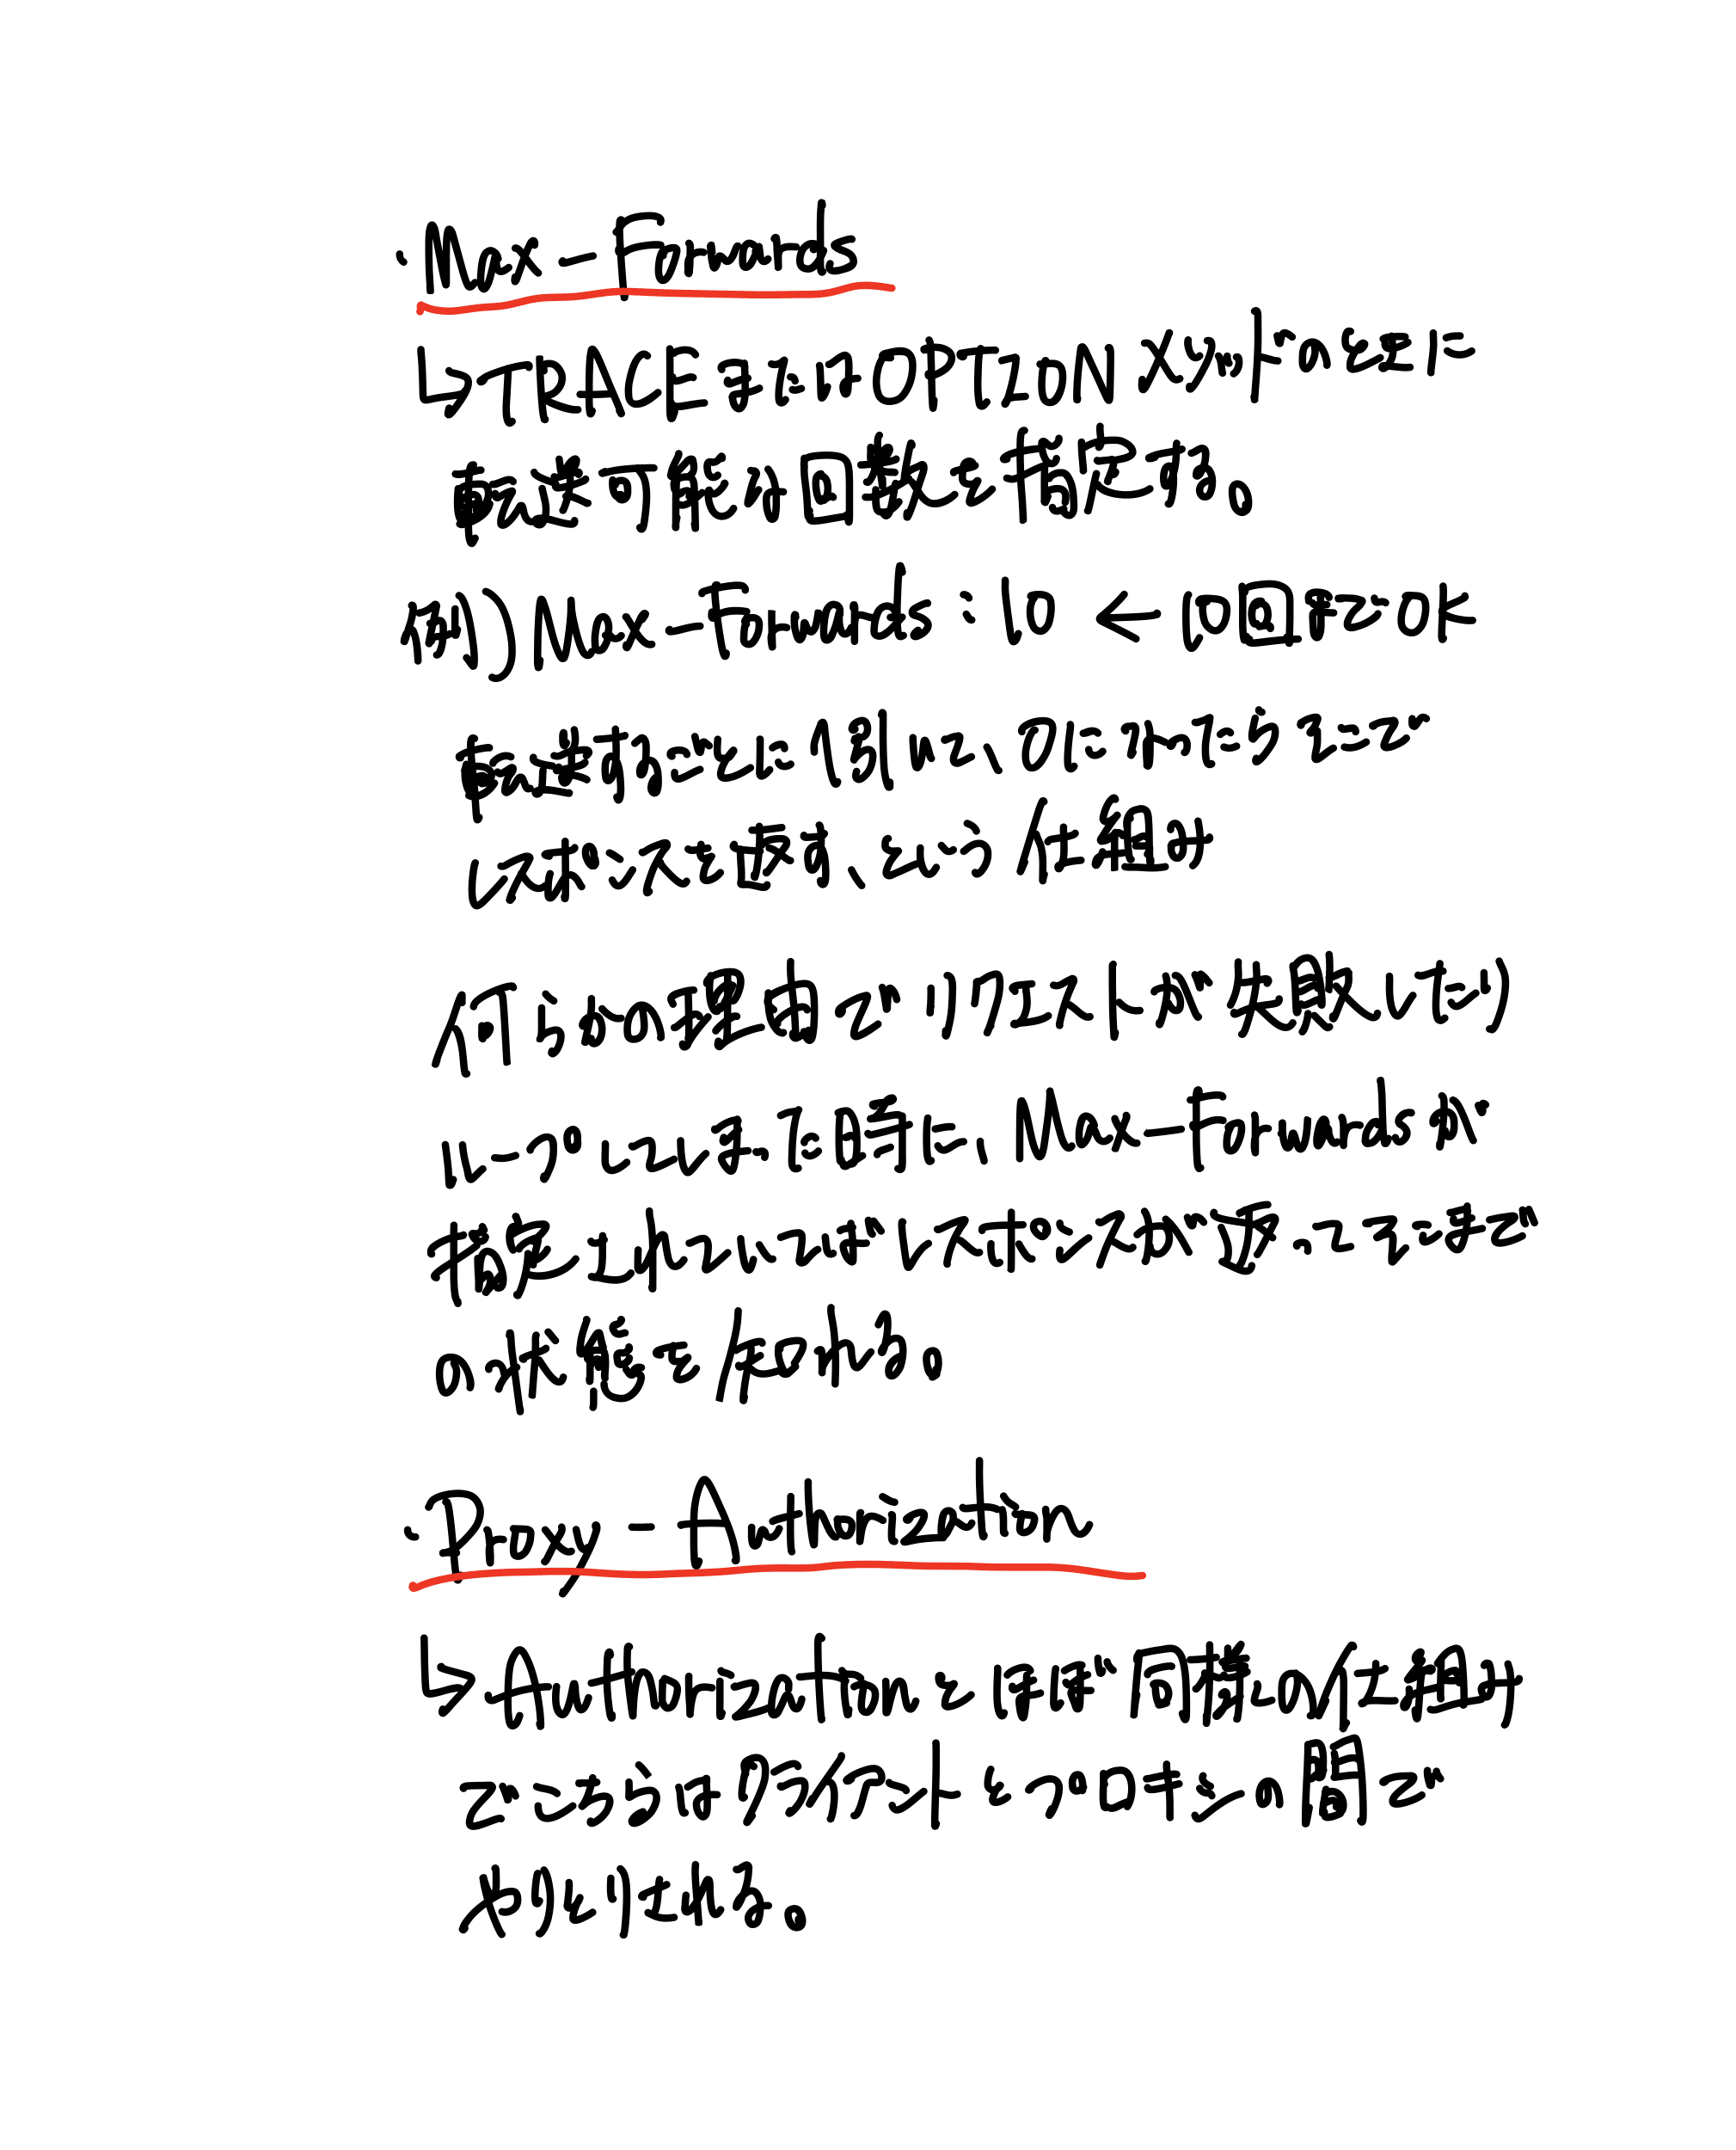 ・Max-Forwards
↳TRACEまたはOPTION メソッドのときに
転送可能な回数を指定する。
例) Max-Forwards:10 ← 10回までOK
転送するごとに1引いて、0になったらそこで
レスポンスを返す、という仕組み
何らかの理由でリクエストが失敗したり
ループしてしまった時に、Max-Forwardsが
指定されていればレスポンスが返ってそこまで
の状態を知れる。
・Proxy-Authorization
↳Authorizationとほぼ同様の仕組み
でこちらはクライアントとプロキシの間で
やりとりされる。